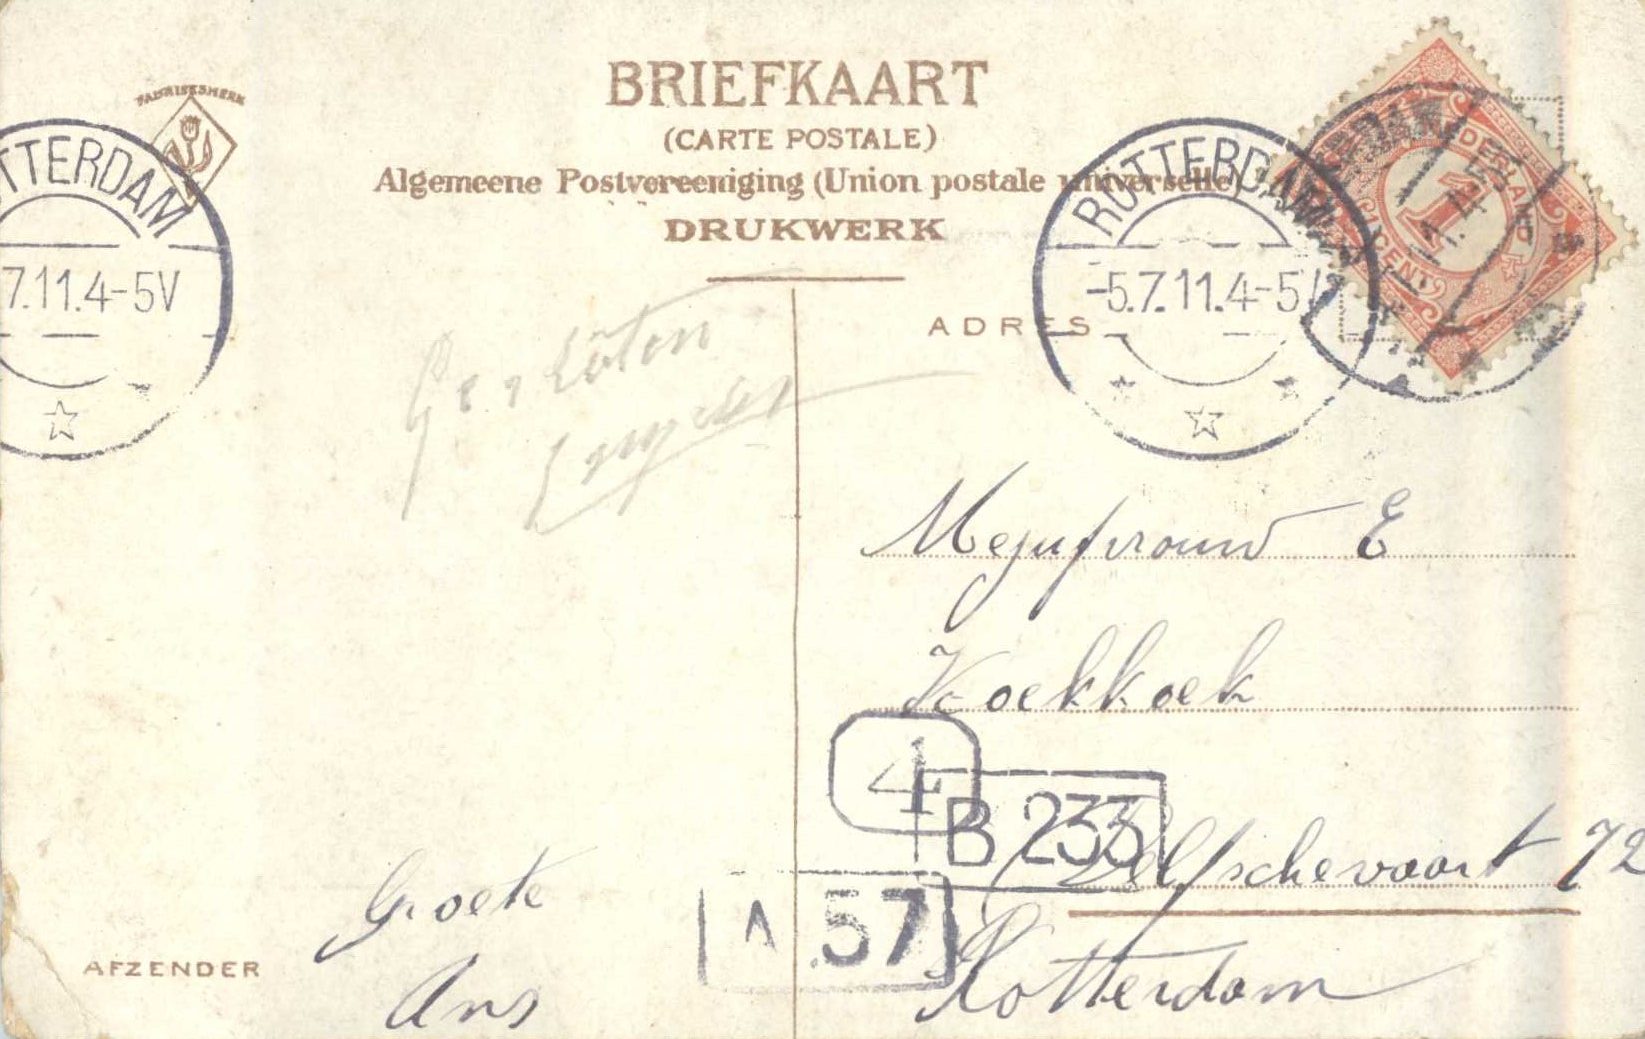 FABRIEKSMERK
BRIEFKAART
(CARTE POSTALE)
Algemeene Postvereeniging (Union postale universelle)
DRUKWERK
ROTTERDAM
7.11.4-5V
ROTTERDAM
-5.7.11.4-5V
NEDERLAND
1
CENT
ADRES
Mejufvrouw E
Koekkoek
4
B 233
Delfschevaart 72
A .57
Rotterdam
Groete
Ans
AFZENDER